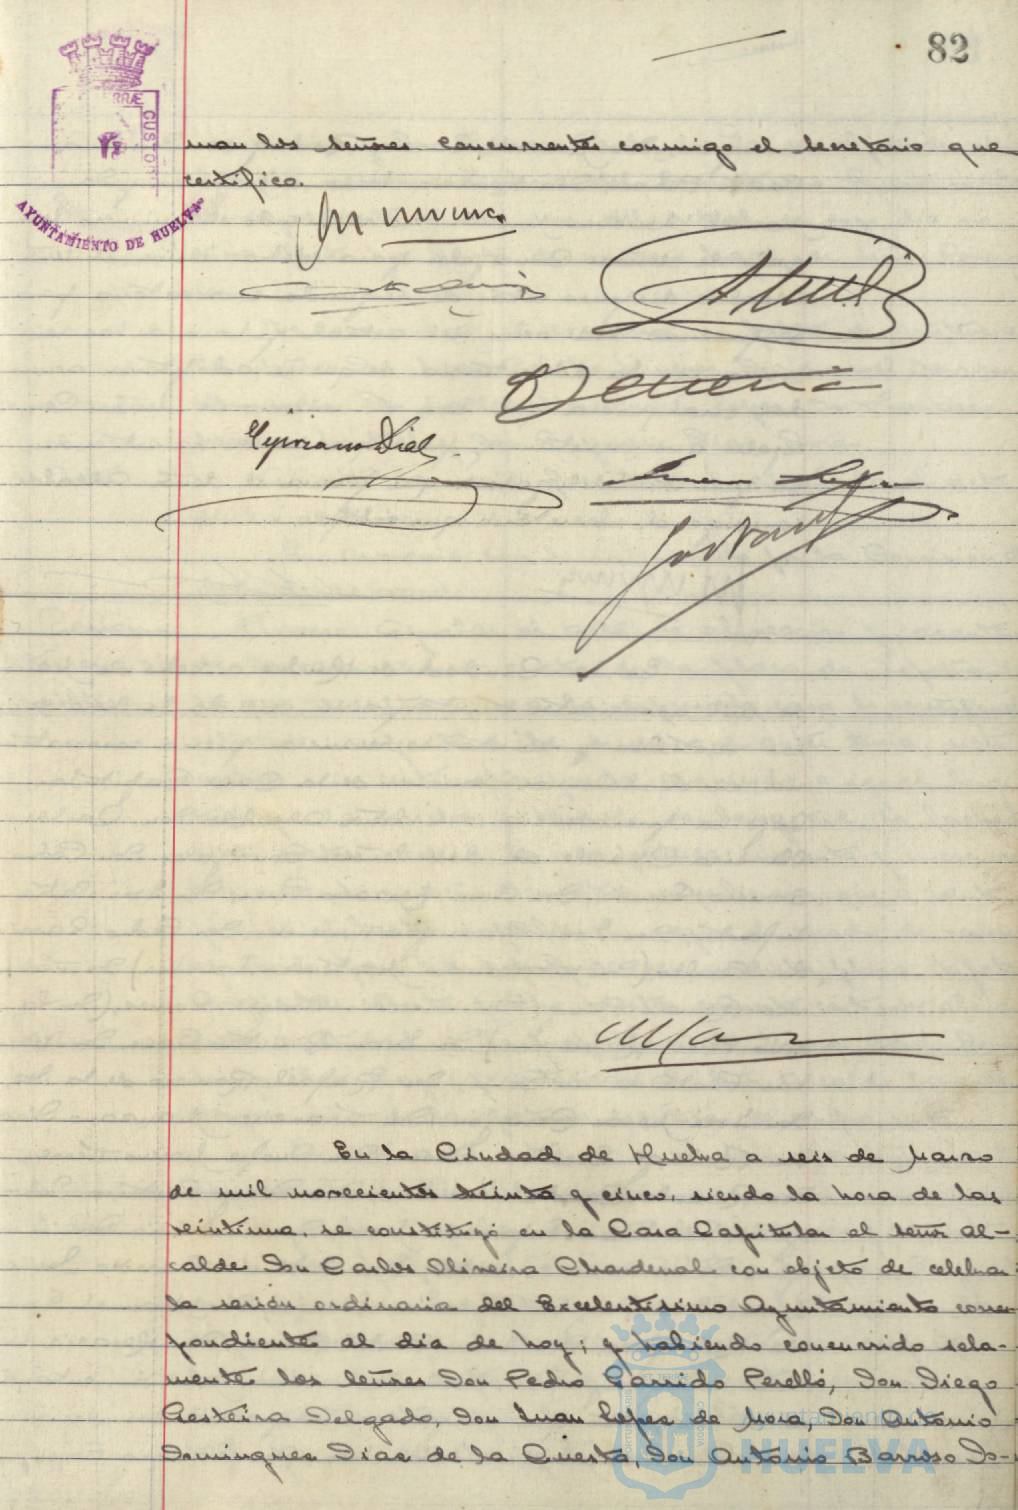 82
RRÆ CUSTO
AYUNTAMIENTO DE HUELVA
man los señores concurrentes conmigo el secretario que
certifico.
Cipriano Diel
En la Ciudad de Huelva a seis de Marzo
de mil novecientos treinta y cinco, siendo la hora de las
veintiuna, se constituyó en la Casa Capitular el señor Al-
calde Don Carlos Oliveira Chardenal con objeto de celebrar
la sesión ordinaria del Excelentísimo Ayuntamiento corres-
pondiente al día de hoy; y habiendo concurrido sola-
mente los señores Don Pedro Garrido Perelló, Don Diego
Resteira Delgado, Don Juan López de Mora, Don Antonio
Domínguez Díaz de la Cuesta, Don Antonio Barroso Do-
Ayuntamiento
HUELVA